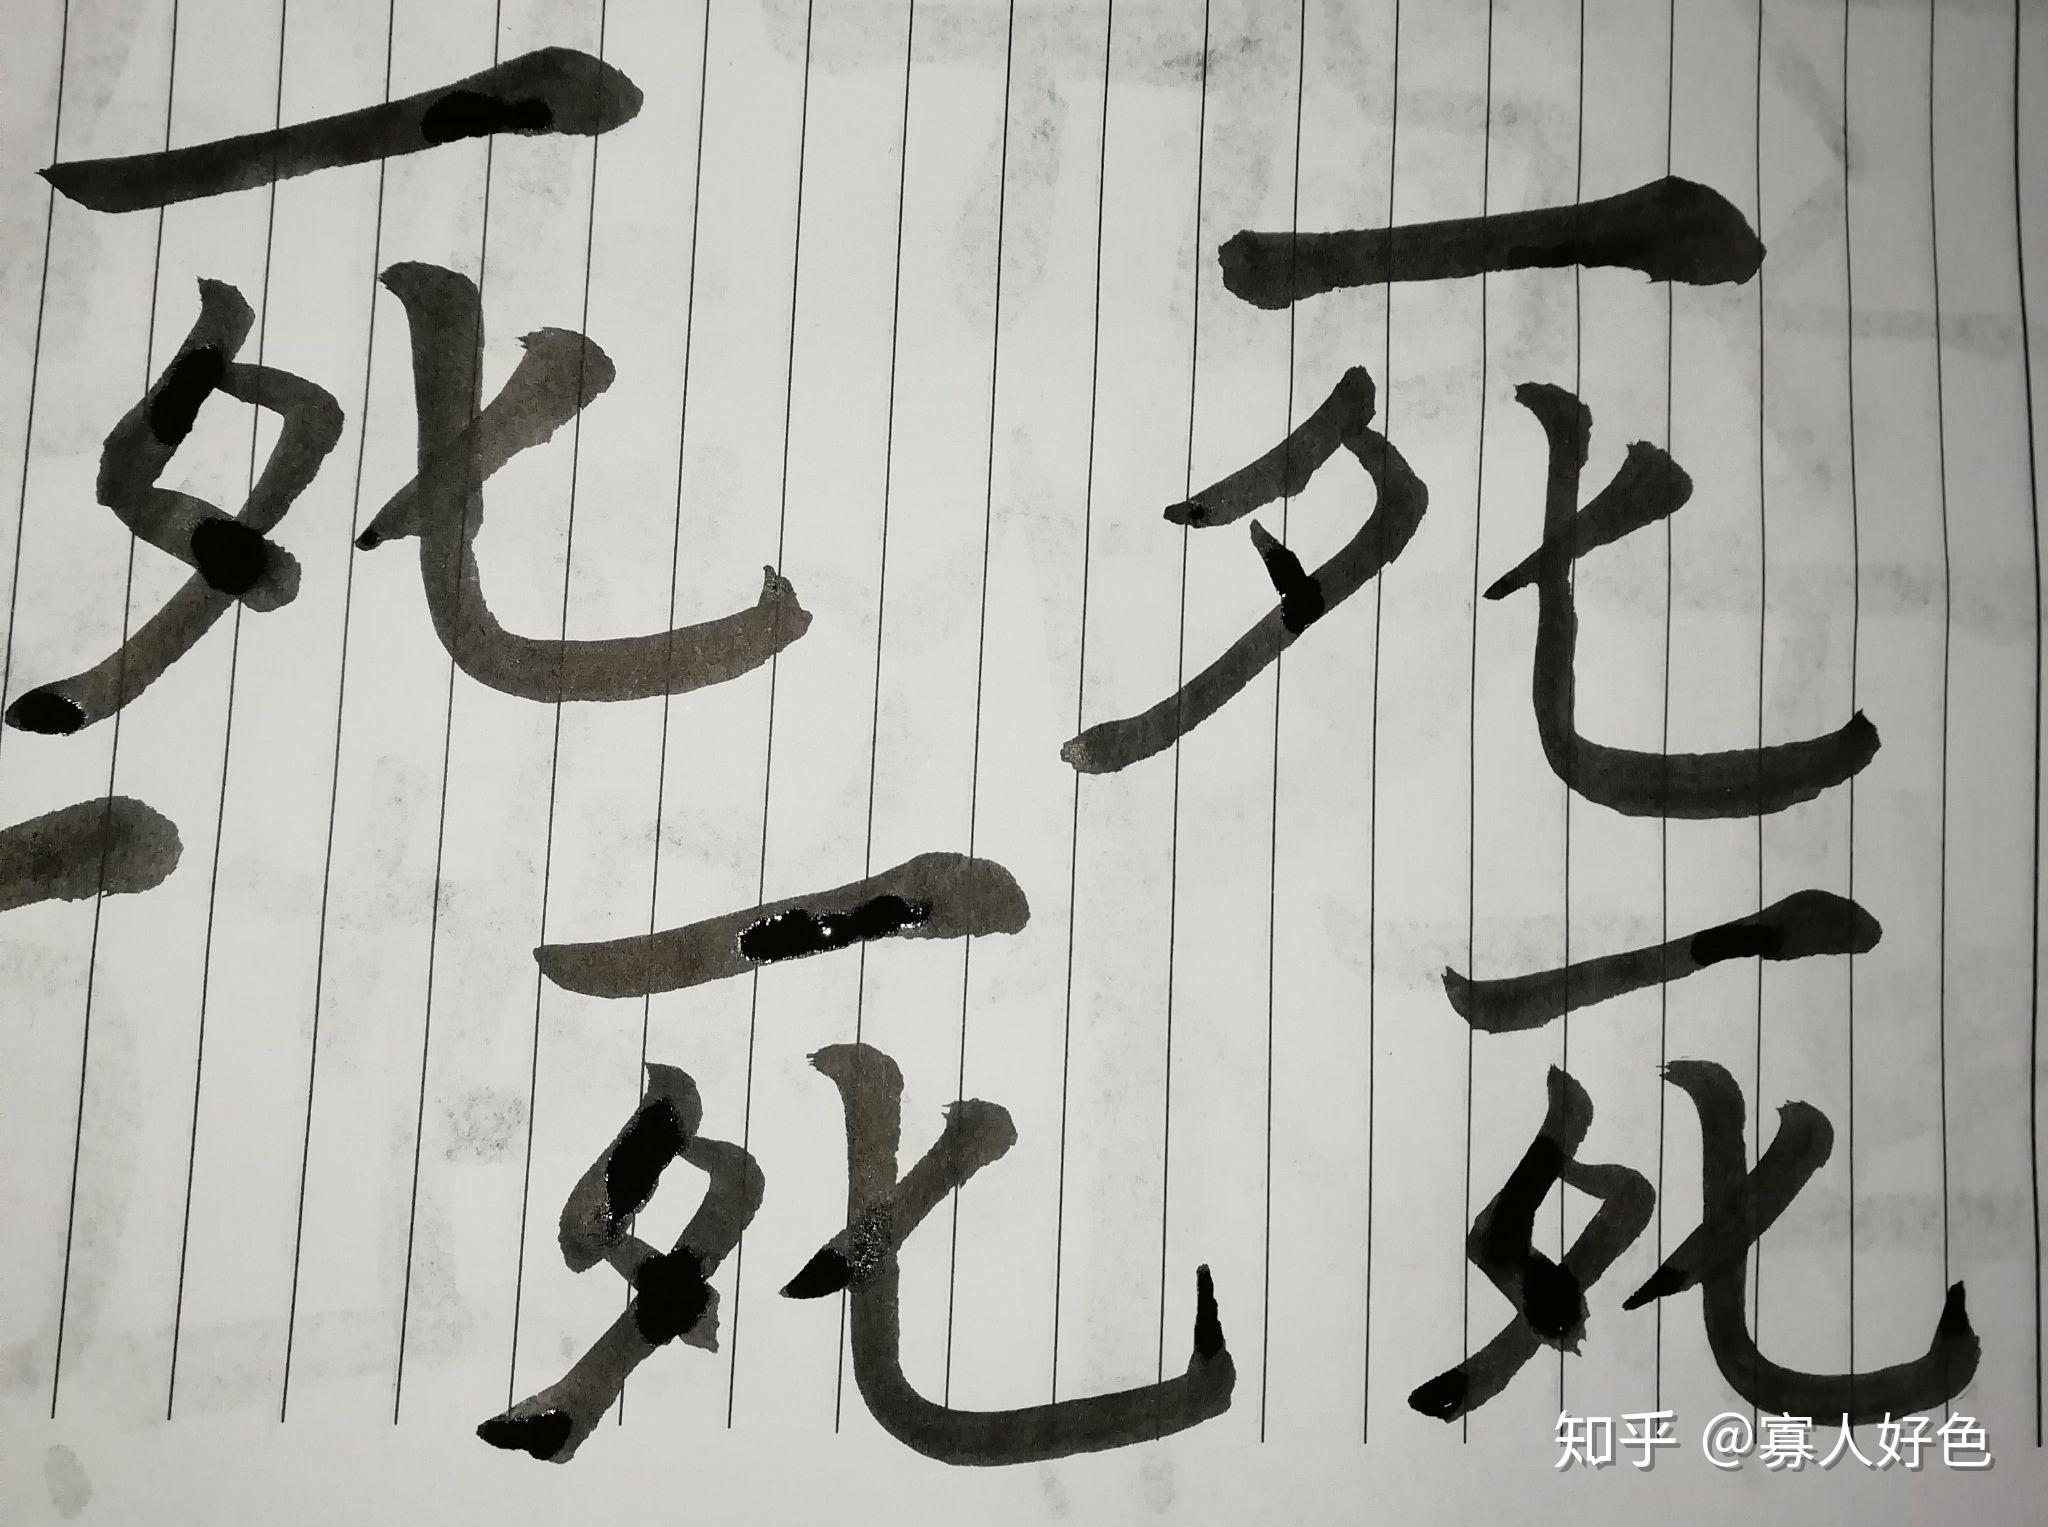 死 死
死 死
知乎 @寡人好色